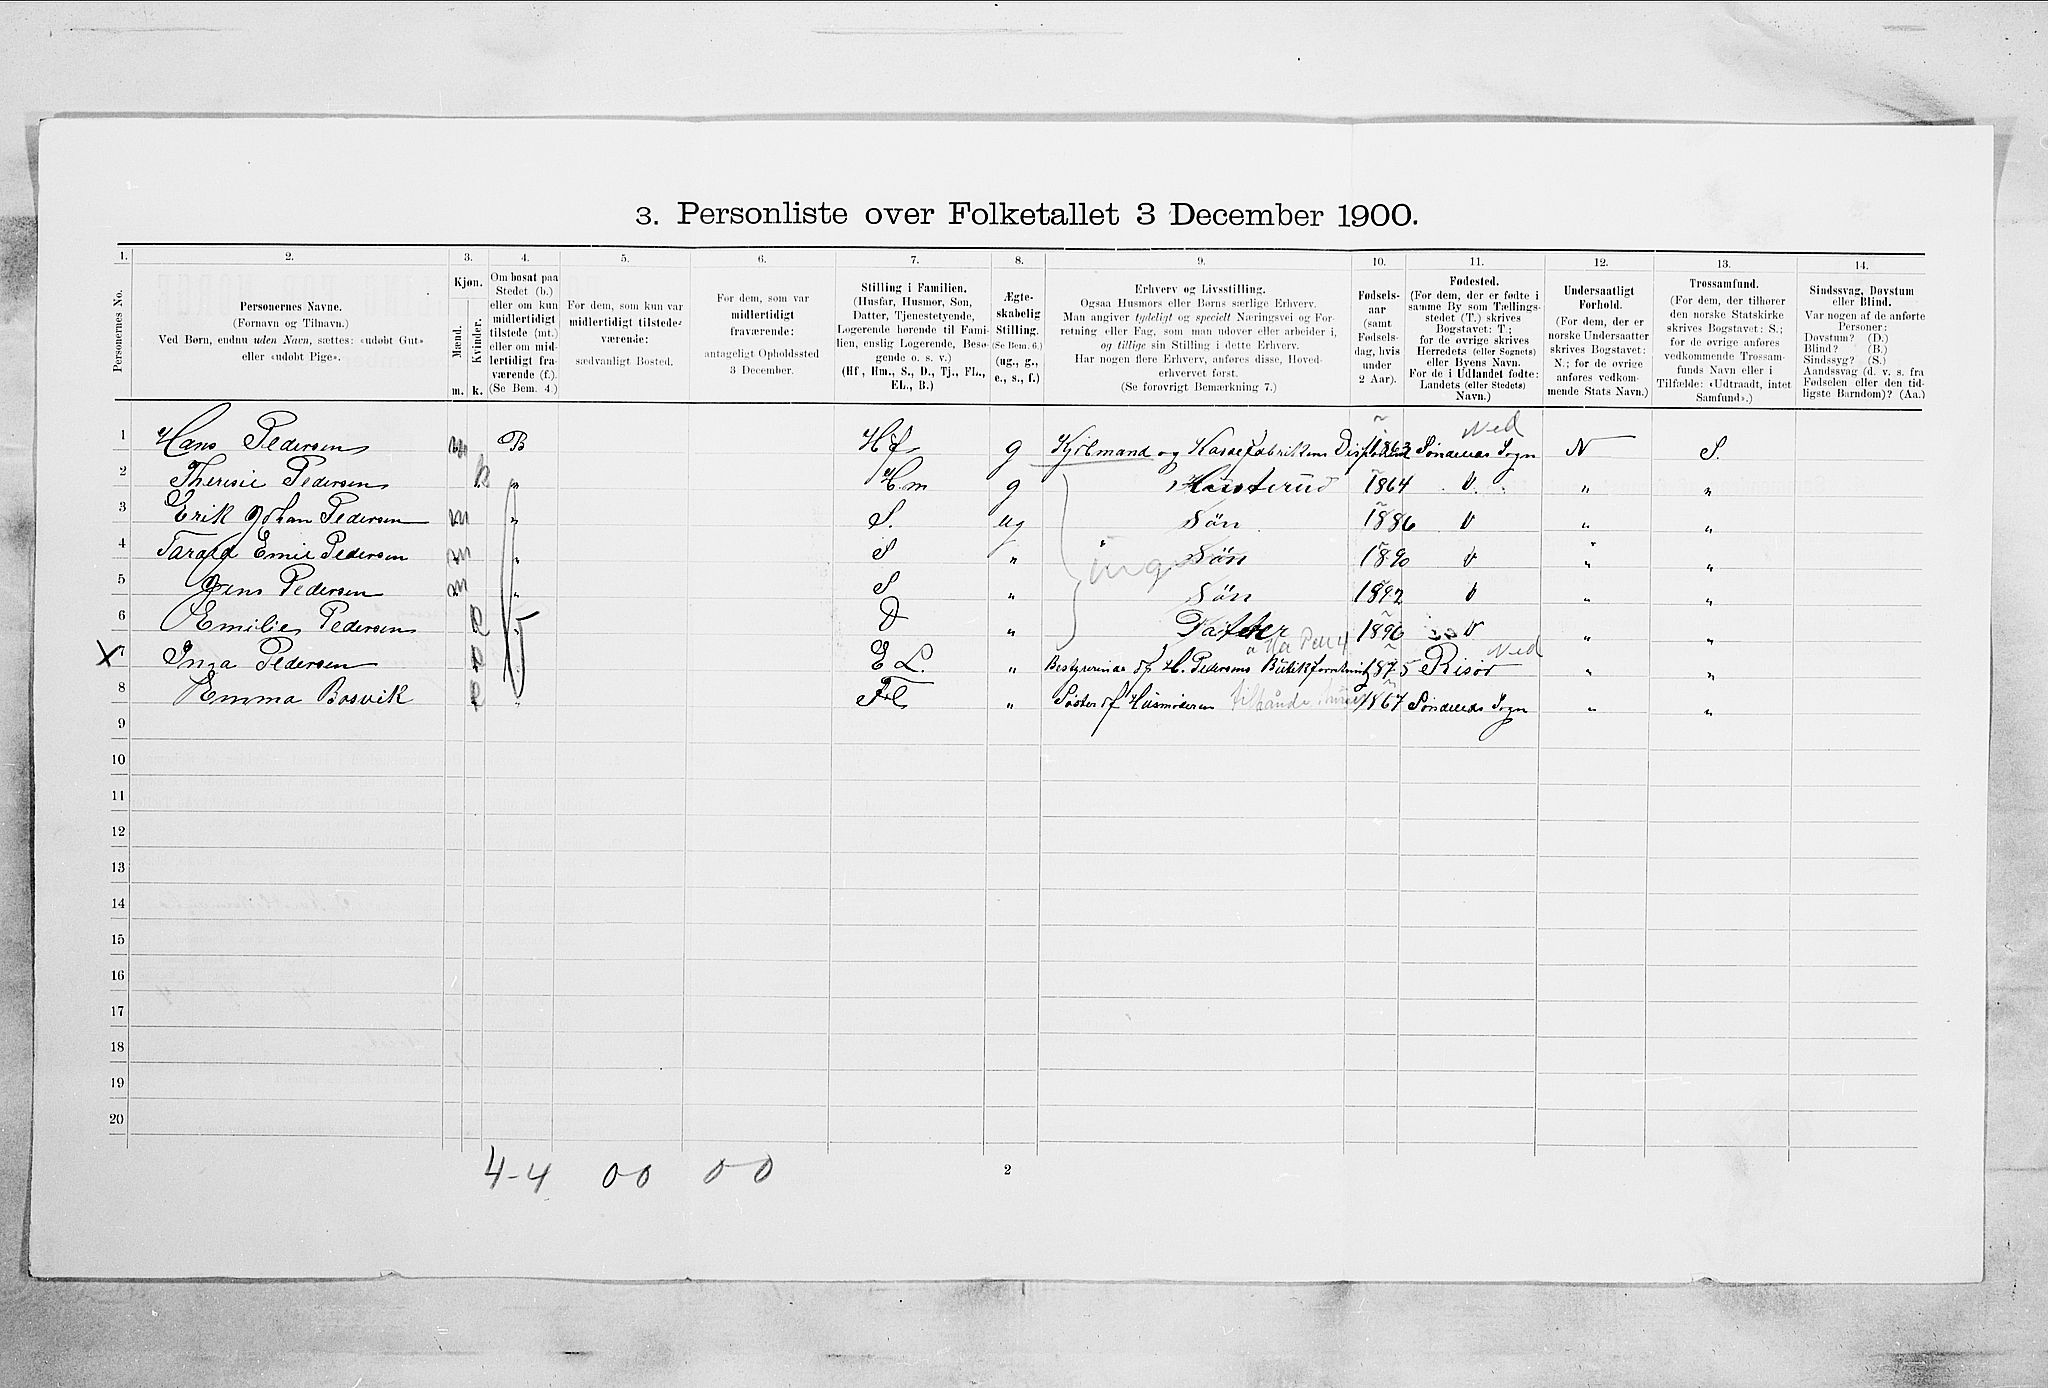 3. Personliste over Folketallet 3 December 1900.
1. 2. 3. 4. 5. 6. 7. 8. 9. 10. 11. 12. 13. 14.
Personernes No.
Personernes Navne.
(Fornavn og Tilnavn.)
Ved Børn, endnu uden Navn, sættes: «udøbt Gut»
eller «udøbt Pige».
Kjøn.
Mænd.
Kvinder.
m. k.
Om bosat paa
Stedet (b.)
eller om kun
midlertidigt
tilstede (mt.)
eller om mid-
lertidigt fra-
værende (f.)
(Se Bem. 4.)
For dem, som kun var
midlertidigt tilstede-
værende:
sædvanligt Bosted.
For dem, som var
midlertidigt
fraværende:
antageligt Opholdssted
3 December.
Stilling i Familien.
(Husfar, Husmor, Søn,
Datter, Tjenestetyende,
Logerende hørende til Fami-
lien, enslig Logerende, Besø-
gende o. s. v.)
(Hf, Hm., S., D., Tj., FL.,
EL., B.)
Ægte-
skabelig
Stilling.
(Se Bem. 6.)
(ug., g.,
e., s., f.)
Erhverv og Livsstilling.
Ogsaa Husmors eller Børns særlige Erhverv.
Man angiver tydeligt og specielt Næringsvei og For-
retning eller Fag, som man udøver eller arbeider i,
og tillige sin Stilling i dette Erhverv.
Har nogen flere Erhverv, anføres disse, Hoved-
erhvervet først.
(Se forøvrigt Bemærkning 7.)
Fødsels-
aar
(samt
Fødsels-
dag, hvis
under
2 Aar).
Fødested.
(For dem, der er fødte i
samme By som Tællings-
stedet (T.) skrives
Bogstavet: T.;
for de øvrige skrives
Herredets (eller Sognets)
eller Byens Navn.
For de i Udlandet fødte:
Landets (eller Stedets)
Navn.)
Undersaatligt
Forhold.
(For dem, der er
norske Undersaatter
skrives Bogstavet:
N.; for de øvrige
anføres vedkom-
mende Stats Navn.)
Trossamfund.
(For dem, der tilhører
den norske Statskirke
skrives Bogstavet: S.;
for de øvrige anføres
vedkommende Trossam-
funds Navn eller i
Tilfælde: «Udtraadt, intet
Samfund».)
Sindssvag, Døvstum
eller Blind.
Var nogen af de anførte
Personer:
Døvstum? (D.)
Blind? (B.)
Sindssyg? (S.)
Aandssvag (d. v. s. fra
Fødselen eller den tid-
ligste Barndom)? (Aa.)
Ned
1 Hans Pedersen m B Hf g Kjøbmand og Kassefabrikens 1863 Sønderleds Sogn N S.
2 Theresie Pedersen k " Hm g Husstrud 1864 " "
3 Erik Johan Pedersen m " S. ug Søn 1886 " "
4 Tarald Emil Pedersen m " S " Søn 1890 " "
ung
5 Jens Pedersen m " S " Søn 1892 " "
6 Emilie Pedersen k " D " Datter 1896 " "
Ned
X 7 Inga Pedersen k EL. " Bestyrerinde af H. Pedersens 1875 Risør " "
8 Emma Bosvik k FL " Søster af Husmoderen 1867 Sønderleds Sogn " "
9
10
11
12
13
14
15
16
17
18
19
20
4-4 00 00
2